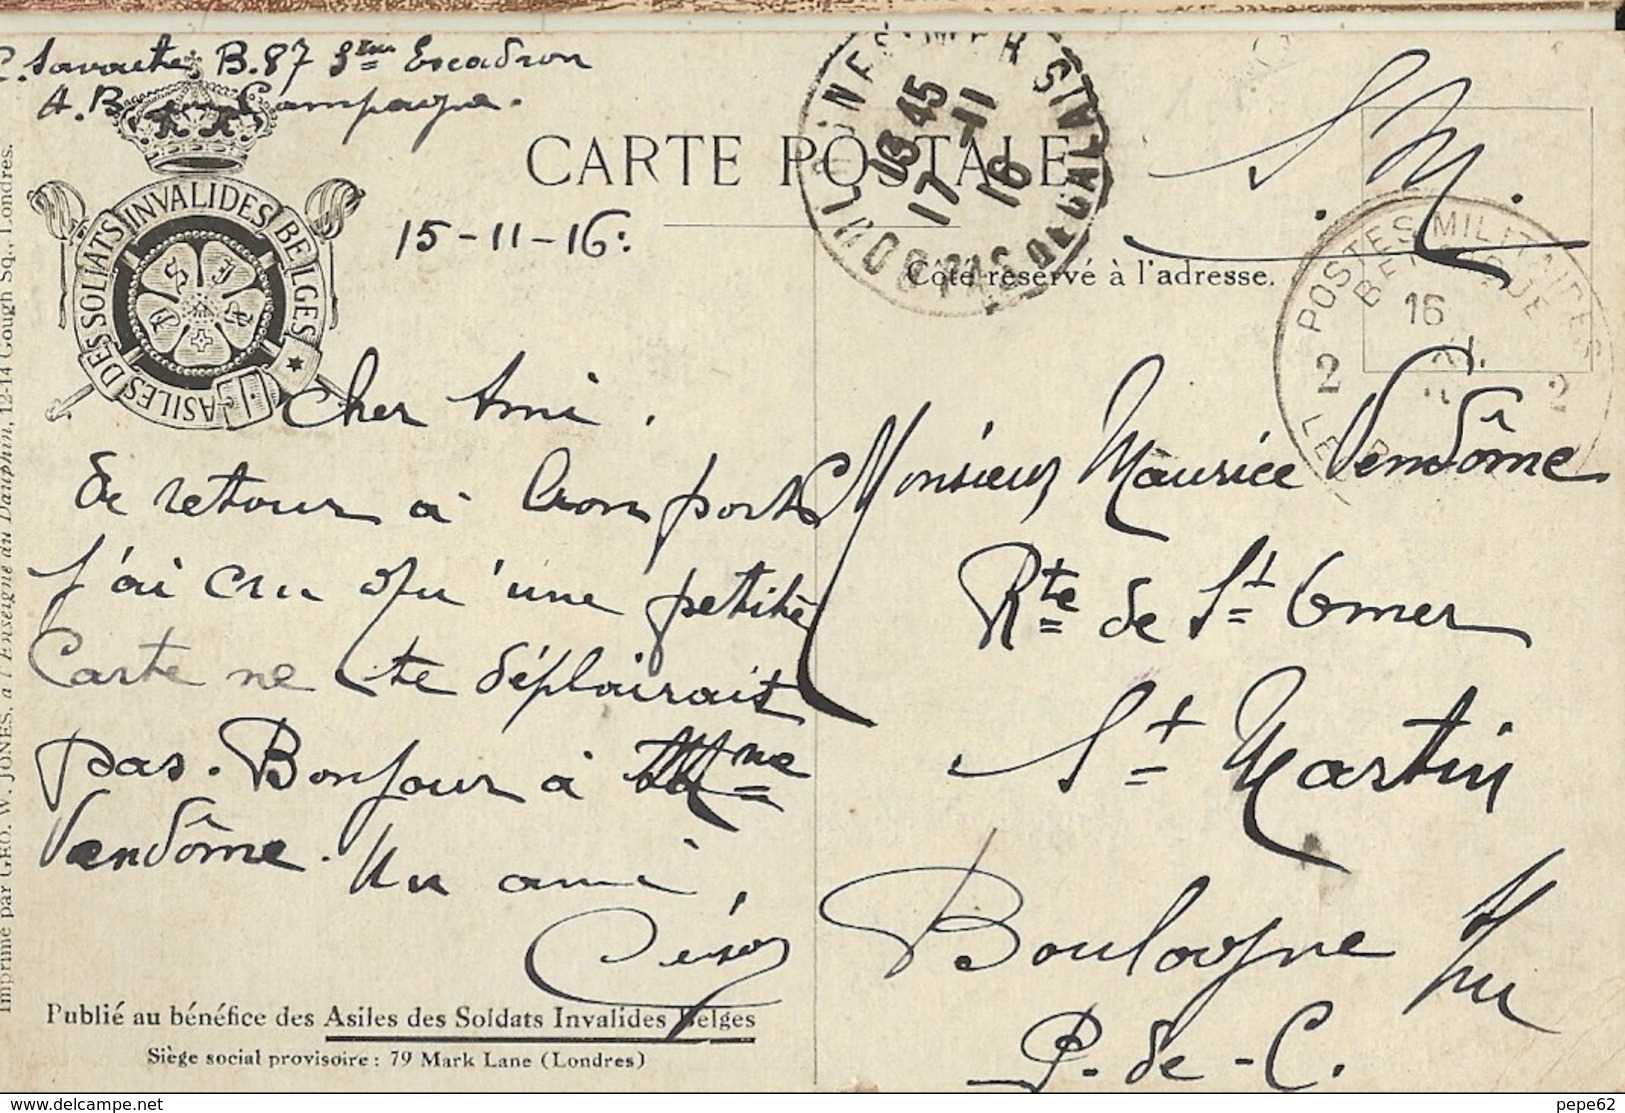 C. Savoute B.87 3eme Escadron
A.B. en Campagne.
CARTE POSTALE
15-11-16
Côté réservé à l'adresse.
S. M.
BOULOGNE-SUR-MER PAS DE CALAIS
18 45
17 -11
16
POSTES MILITAIRES
BELGIQUE
16
2 2
ASILES DES SOLDATS INVALIDES BELGES
Cher Ami.
de retour à bon port
j'ai cru qu'une petite
Carte ne te déplairait
pas. Bonjour à Mme
Vendôme. Un ami,
César
Monsieur Maurice Vendôme
Rte de St Omer
St Martin
Boulogne s/m
P.-de-C.
Publié au bénéfice des Asiles des Soldats Invalides Belges
Siège social provisoire : 79 Mark Lane (Londres)
Imprimé par GEO. W. JONES, à l'Enseigne du Dauphin, 12-14 Gough Sq., Londres.
www.delcampe.net
pepe62